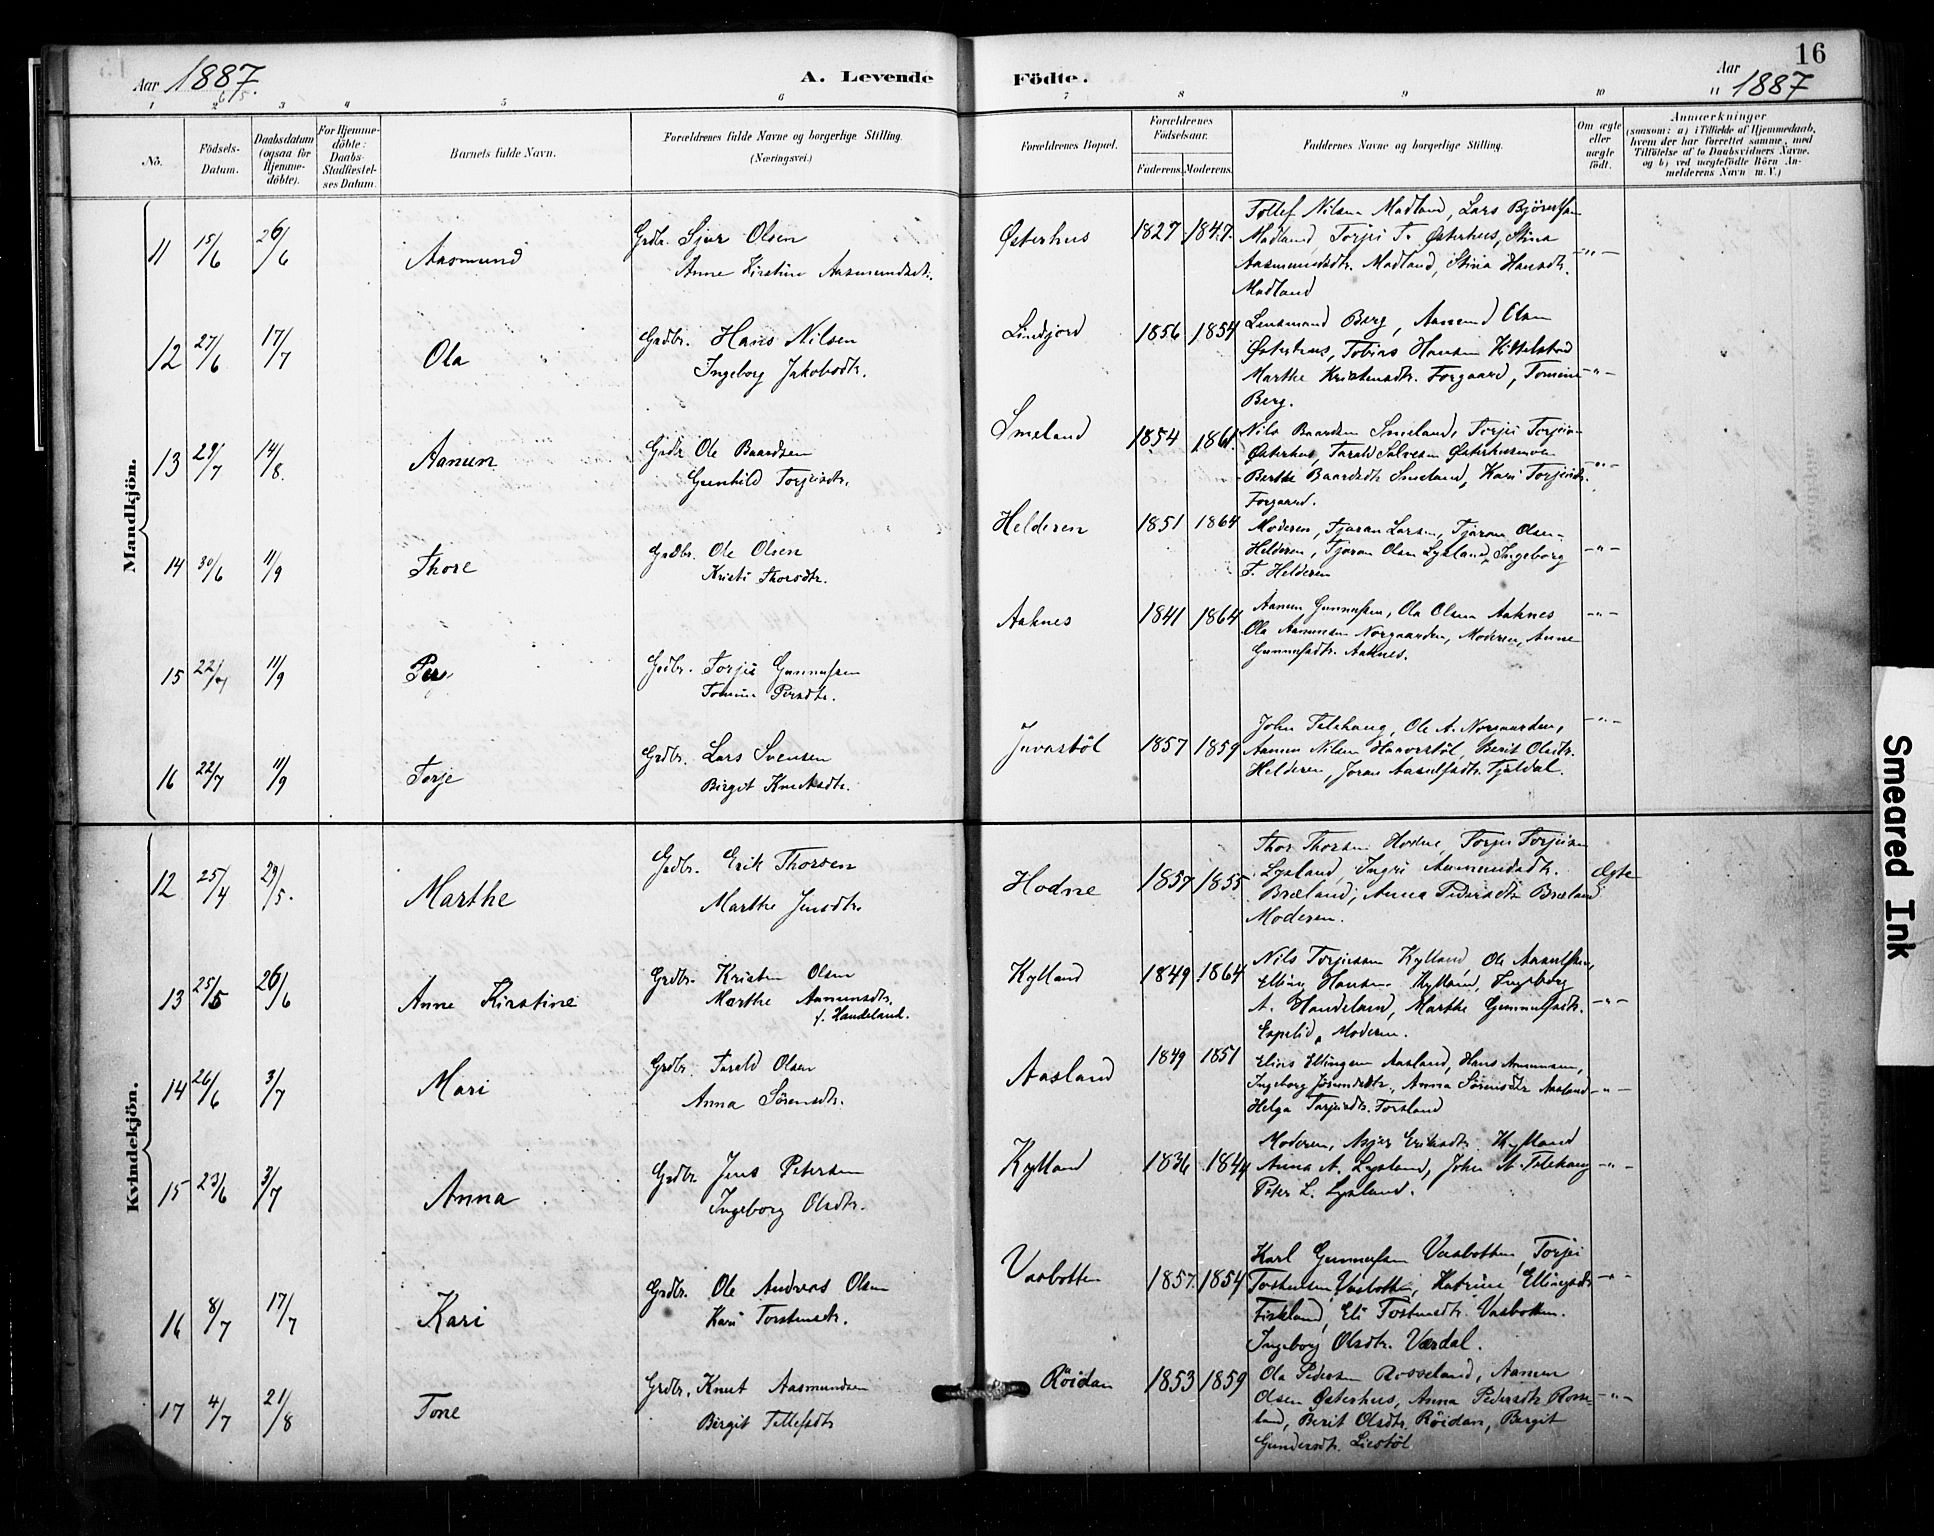 Aar 1887.
6/5
A. Levende
Födte.
Aar
" 1887
16
1 2 3 4 5 6 7 8 9 10
No.
Födsels-
Datum.
Daabsdatum
(ogsaa for
Hjemme-
döbte).
For Hjemme-
döbte:
Daabs-
Stadfæstel-
ses Datum.
Barnets fulde Navn.
Forældrenes fulde Navne og borgerlige Stilling.
(Næringsvei.)
Forældrenes Bopæl.
Forældrenes
Födselsaar.
Faderens. Moderens.
Faddernes Navne og borgerlige Stilling.
Om ægte
eller
uægte
født.
Anmærkninger
(saasom: a) i Tilfælde af Hjemmedaab,
hvem der har forrettet samme, med
Tilföielse af to Daabsvidners Navne,
og b) ved uægtefödte Börn An-
melderens Navn m. V.)
Mandkjön.
11 15/6 26/6 Aasmund
Grdbr. Sjur Olsen
Anne Kirstine Aasmundsdtr.
Østerhus 1827. 1847.
Tollef Nilsen Madland, Lars Björulfsen
Madland, Torjei T. Østerhus, Stina
Aasmundsdtr. Madland, Stina Hansdtr.
Madland
-"-
12 27/6 17/7 Ola
Grdbr. Hans Nilsen
Ingeborg Jakobsdtr.
Lindjord 1856 1854
Lensmand Berg, Aanund Olsen
Østerhus, Tobias Hansen Kittelstad
Marthe Kristensdtr. Forgaard, Tomine
Berg.
-"-
13 29/7 14/8. Aanen
Grdbr Ole Baardsen
Gunhild Torjeisdtr.
Smeland 1854 1861
Nils Baardsen Smeland, Torjei Torjeis-
Østerhus, Tarald Salvesen Østerhusmoen
Berthe Baardsdtr Smeland, Kari Torjeisdtr.
Forgaard.
-"-
14 30/6 11/9 Thore
Grdbr. Ole Olsen
Kristi Thorsdtr.
Helderen 1851 1864
Moderen, Tjøran Larsen, Tjøran Olsen-
Helderen, Tjøran Olsen Lysland, Ingeborg
T. Helderen
-"-
15 22/7 11/9 Per
Grdbr. Torjei Gunnufsen
Tomine Persdtr.
Aaknes 1841 1864
Aanen Gunnufsen, Ola Olsen Aaknes
Ola Aanensen Norgaarden, Moderen, Anne
Gunnufsdtr. Aaknes.
-"-
16 22/7 11/9 Torje
Grdbr. Lars Svensen
Birgit Knutsdtr.
Juvastöl 1857 1859
John Telehaug, Ole A. Norgaarden,
Aanen Nilsen Haaverstöl, Berit Olsdtr.
Helderen, Joran Aasulfsdtr. Tjeldal.
-"-
Kvindekjön.
12 25/4 29/5. Marthe
Grdbr. Erik Thorsen
Marthe Jensdtr.
Hodne 1857 1855
Thor Thorsen Hodne, Torjei Torjeisen
Lysland, Ingri Aanensdsdtr.
Bræland, Anna Pedersdtr Bræland
Moderen.
Ægte
13 25/5 26/6 Anne Kirstine
Grdbr. Kristen Olsen
Marthe Aanensdtr.
f. Handeland.
Kylland 1849 1864
Nils Torjeisen Kylland, Ole Aasulfsen,
Elling Hansen Kylland, Ingeborg
A. Handeland, Marthe Gunnufsdtr.
Espelid, Moderen.
-"-
14 26/6 3/7 Mari
Grdbr. Tarald Olsen
Anna Sørensdtr.
Aasland 1849 1851
Elias Ellingsen Aasland, Hans Aanensen,
Ingeborg Josundsdtr., Anna Sørensdtr Aasland
Helga Tarjeisdtr. Forsland
-"-
15 23/6 3/7 Anna
Grdbr Jens Petersen
Ingeborg Olsdtr.
Kylland 1836 1844
Moderen, Asjer Eriksdtr. Kylland
Anna A. Lysland, John A. Telehaug
Peter L. Lysland.
-"-
16 8/7 17/7 Kari
Grdbr. Ole Andreas Olsen
Kari Torstensdtr.
Vasbotten 1857. 1854
Karl Gunnufsen Vasbotten, Torjei
Torstensen Vasbotten, Katrine Ellingsdtr
Fiskland, Eli Torstensdtr. Vasbotten.
Ingeborg Olsdtr. Værdal.
-"-
17 4/7 21/8 Tone
Grdbr. Knut Aasmundsen
Birgit Tellefsdtr.
Röidan 1853 1859
Ola Pedersen Rosseland, Aanen
Olsen Østerhus, Anna Pedersdtr Rosse-
land, Berit Olsdtr. Röidan, Bergit
Gundersdtr. Liestöl.
-"-
Smeared Ink